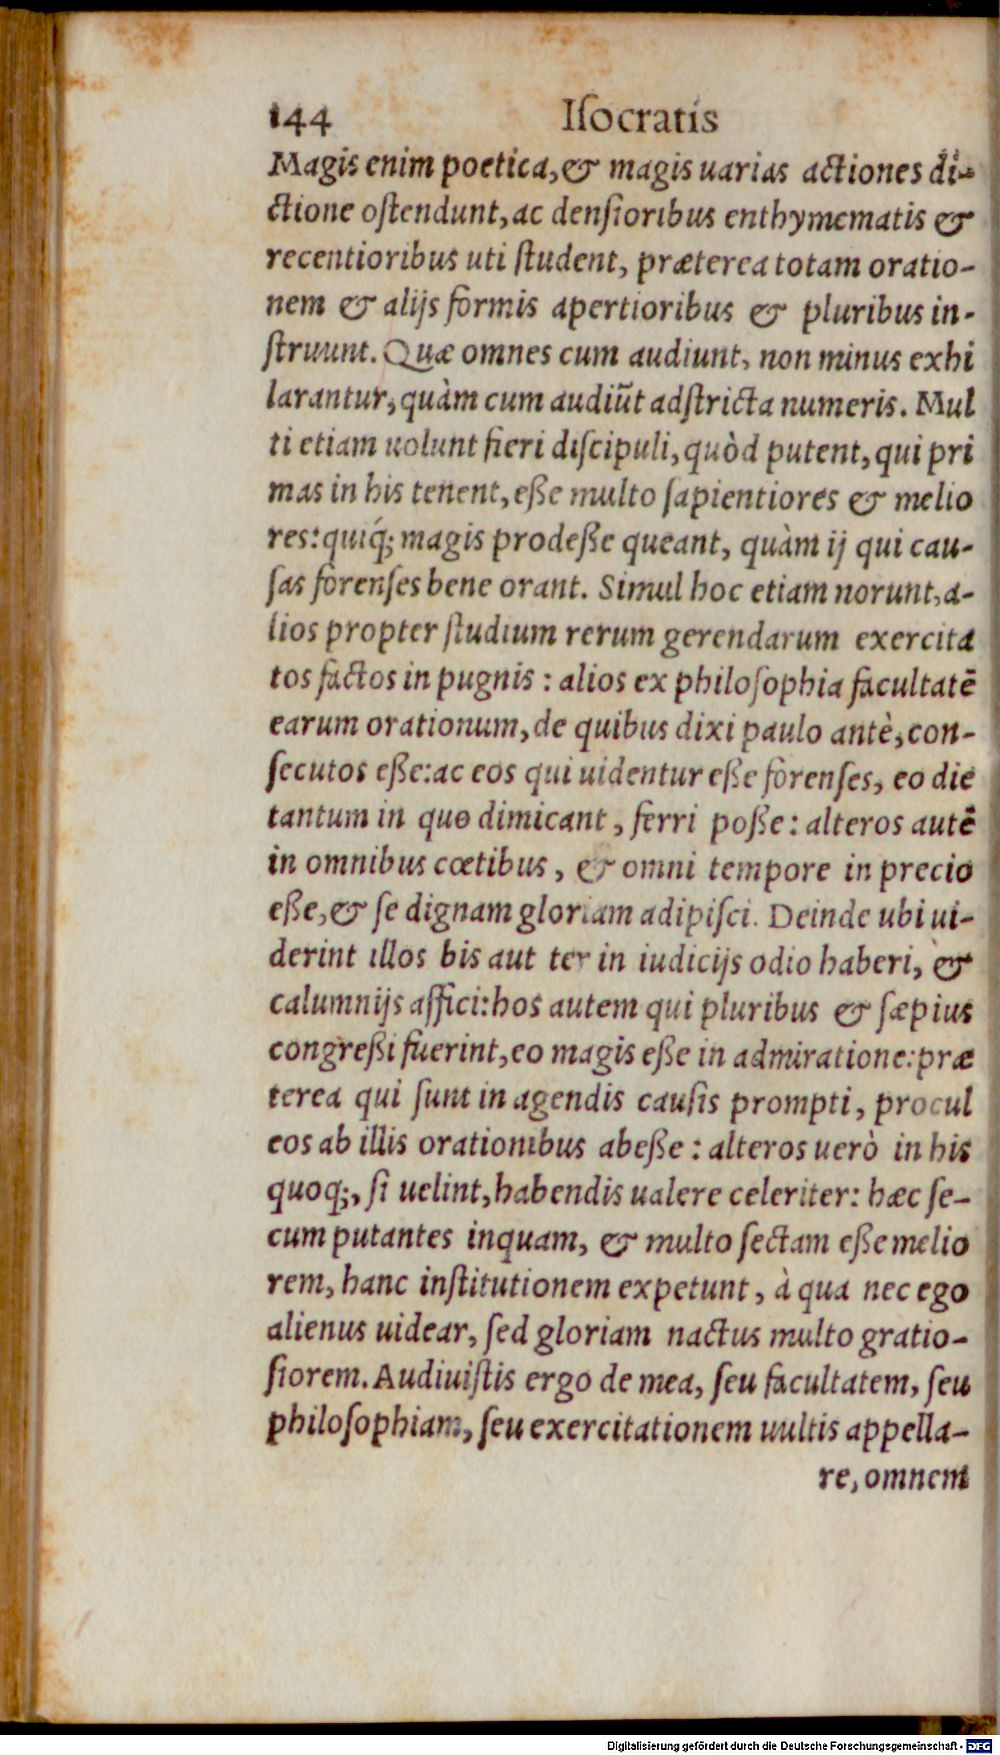 144 Iſocratis
Magis enim poetica, & magis uarias actiones di-
ctione oſtendunt, ac denſioribus enthymematis &
recentioribus uti ſtudent, præterea totam oratio-
nem & alijs formis apertioribus & pluribus in-
ſtruunt. Quæ omnes cum audiunt, non minus exhi
larantur, quàm cum audiūt adſtricta numeris. Mul
ti etiam uolunt fieri diſcipuli, quòd putent, qui pri
mas in his tenent, eße multo ſapientiores & melio
res: quiq́; magis prodeße queant, quàm ij qui cau-
ſas forenſes bene orant. Simul hoc etiam norunt, a-
lios propter ſtudium rerum gerendarum exercita
tos factos in pugnis : alios ex philoſophia facultatē
earum orationum, de quibus dixi paulo antè, con-
ſecutos eße: ac eos qui uidentur eße forenſes, eo die
tantum in quo dimicant, ferri poße : alteros autē
in omnibus cœtibus, & omni tempore in precio
eße, & ſe dignam gloriam adipiſci. Deinde ubi ui-
derint illos bis aut ter in iudicijs odio haberi, &
calumnijs affici: hos autem qui pluribus & ſæpius
congreßi fuerint, eo magis eße in admiratione: præ
terea qui ſunt in agendis cauſis prompti, procul
eos ab illis orationibus abeße : alteros uerò in his
quoq;, ſi uelint, habendis ualere celeriter: hæc ſe-
cum putantes inquam, & multo ſectam eße melio
rem, hanc inſtitutionem expetunt, à qua nec ego
alienus uidear, ſed gloriam nactus multo gratio-
ſiorem. Audiuiſtis ergo de mea, ſeu facultatem, ſeu
philoſophiam, ſeu exercitationem uultis appella-
re, omnem
Digitalisierung gefördert durch die Deutsche Forschungsgemeinschaft - DFG